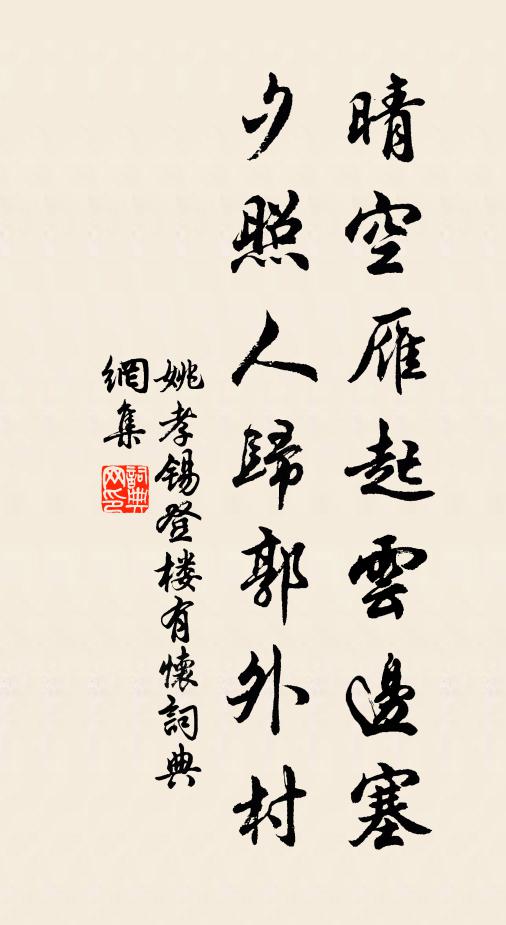 晴空雁起雲邊塞
夕照人歸郭外村
姚孝錫登楼有懷詞典
網集
詞典
网印